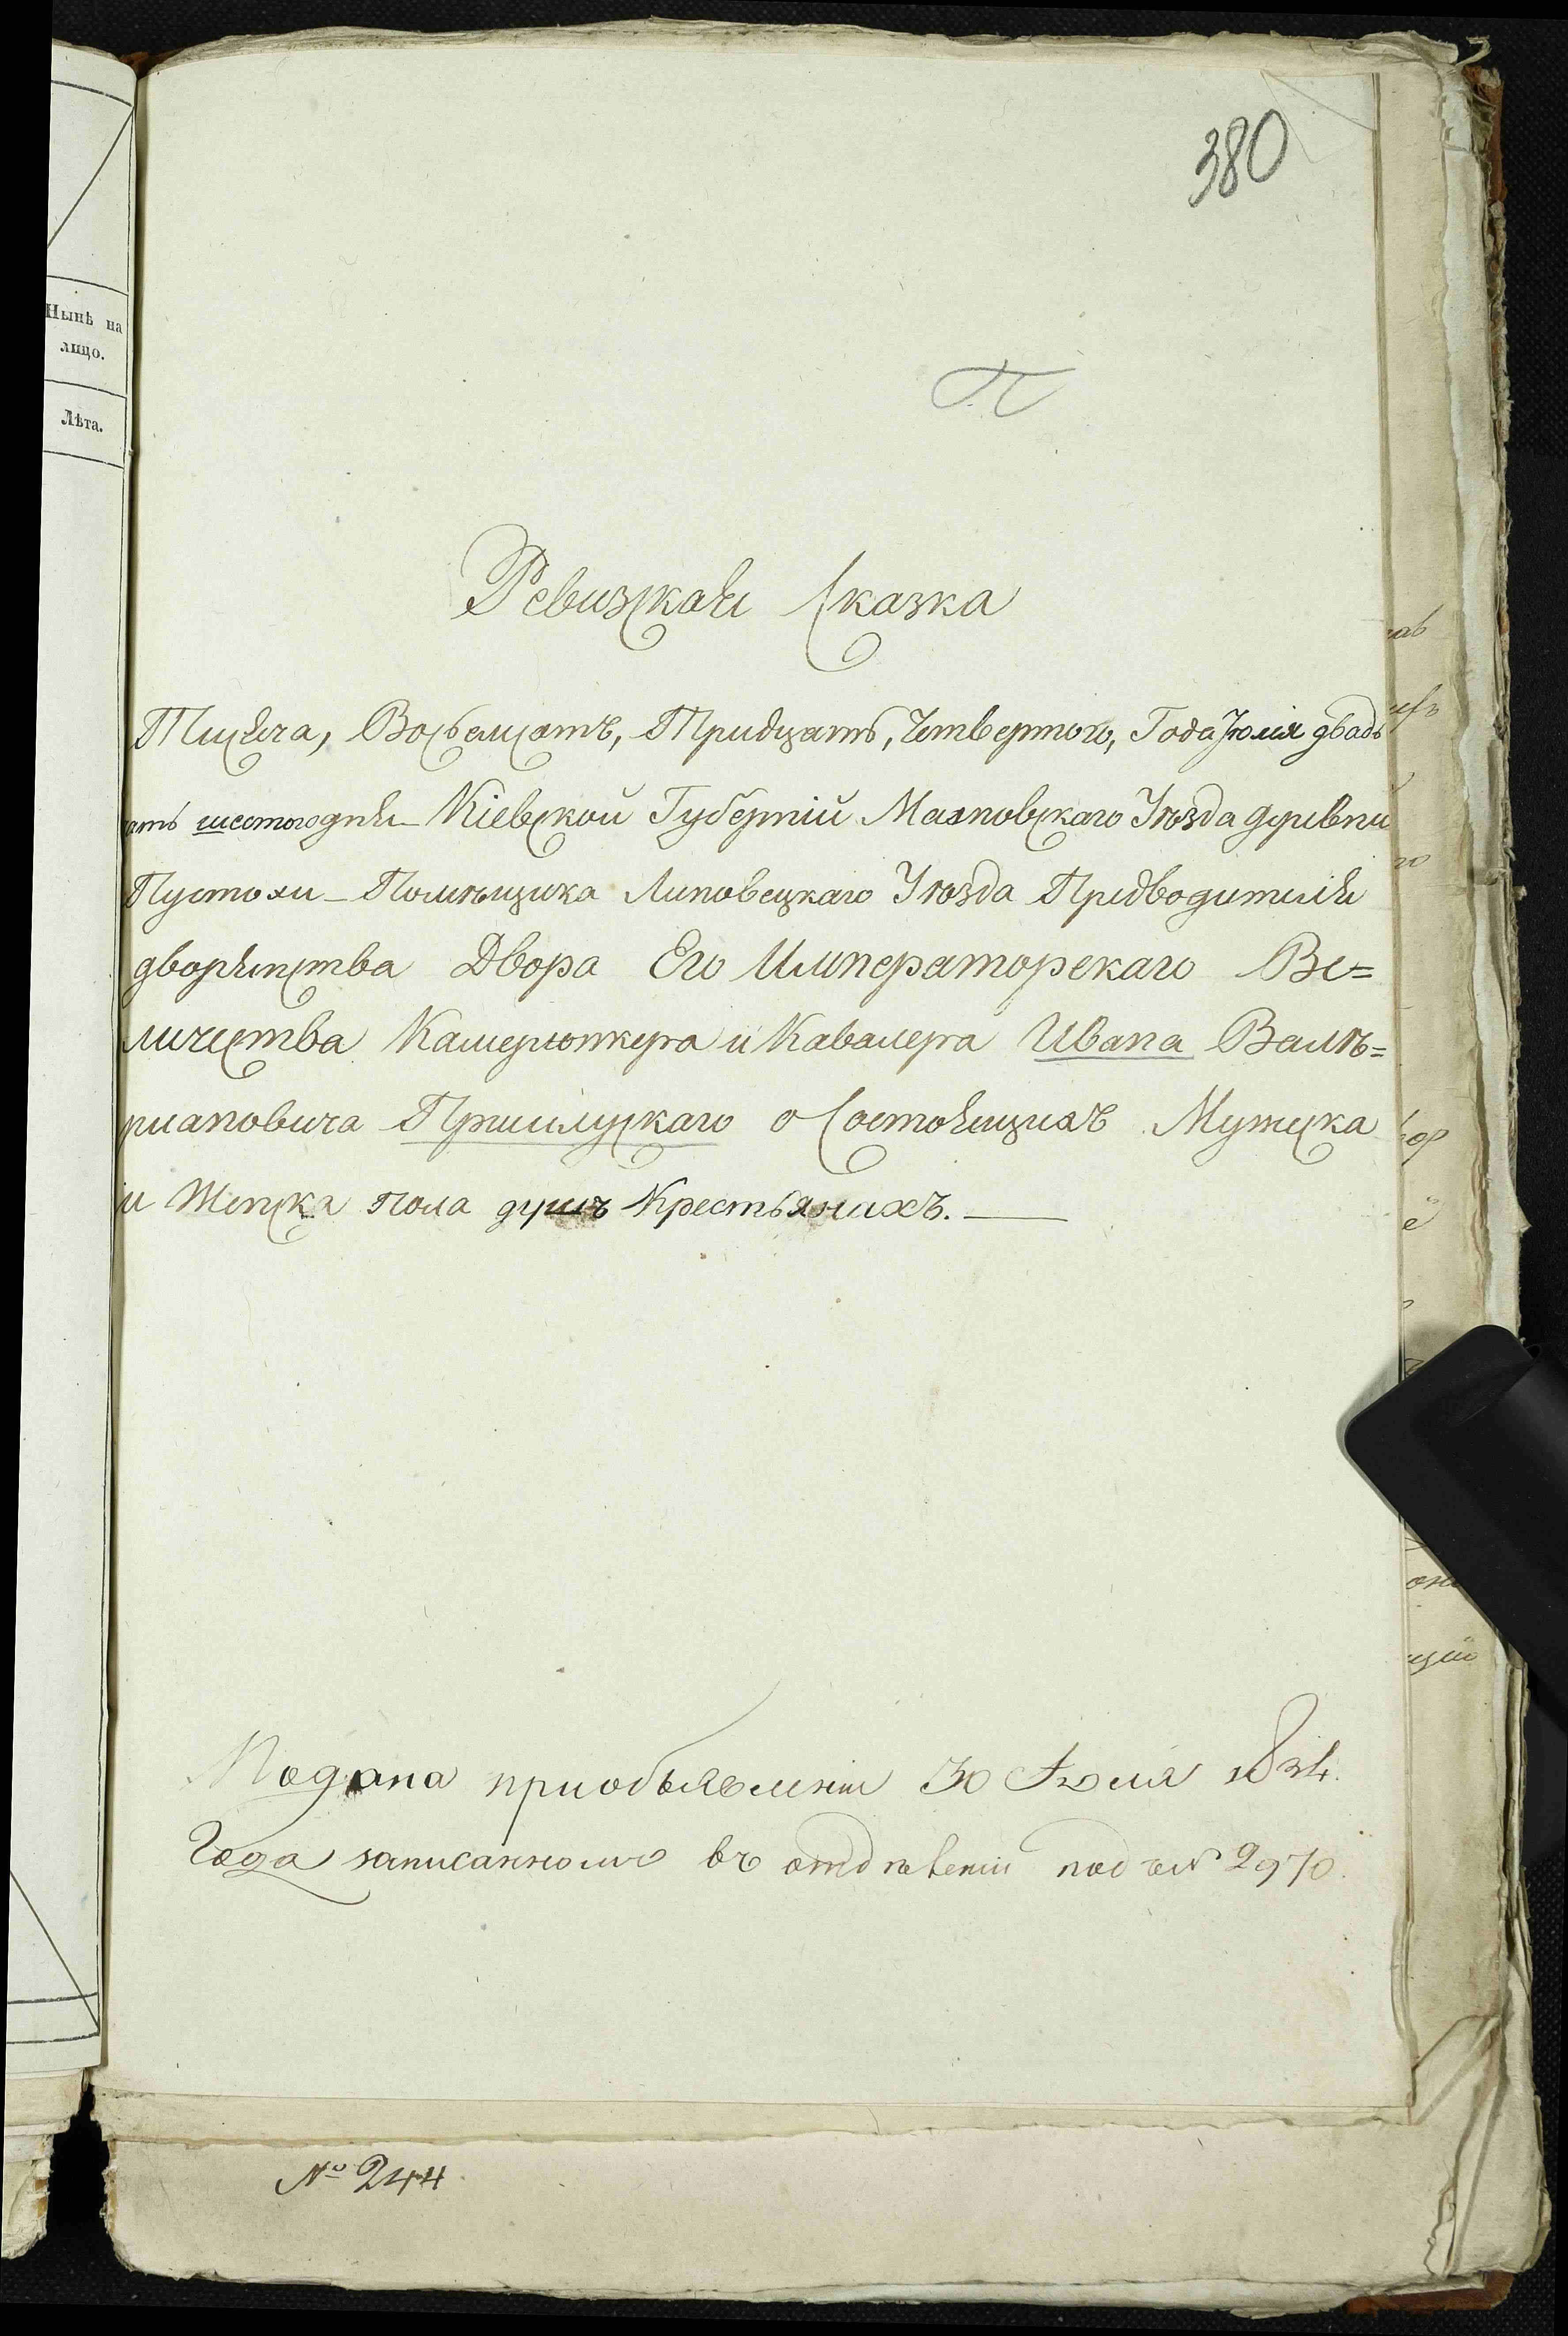 380
П
Нынѣ на
лицо.
Лѣта.
Ревизская Сказка
Тисяча, Восьемсотъ, Тридцать, Четвертого, Года Іюля двадь
цать шестого дня Кіевской Губерніи Махновскаго Уѣзда деревни
Пустохи - Помѣщика Липовецкаго Уѣзда Предводителя
дворянства Двора Его Императорскаго Ве=
личества Камерюнкера и Кавалера Ивана Валѣ=
риановича Пршилускаго о Состоящихъ Мужеска
и Женска пола душъ Крестьянахъ.
Подана приобъявленіи 30 Іюля 1834.
Года записанномъ въ отдѣленіи подъ № 2970.
№ 244